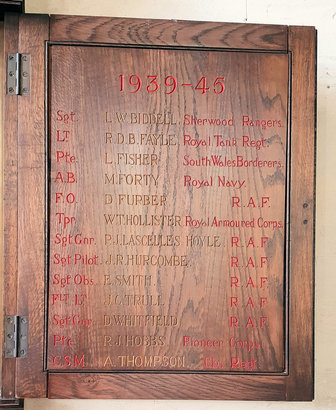 1939-45
Sgt. L.W. BIDDELL. Sherwood Rangers.
LT. R.D.B. FAYLE. Royal Tank Regt.
Pte. L. FISHER. South Wales Borderers.
A.B. M. FORTY. Royal Navy.
F.O. D. FURBER. R.A.F.
Tpr. W.T. HOLLISTER. Royal Armoured Corps.
Sgt Gnr. P.J. LASCELLES HOYLE. R.A.F.
Sgt Pilot. J.R. HURCOMBE. R.A.F.
Sgt Obs. E. SMITH. R.A.F.
Flt Lt. J.C. TRULL. R.A.F.
Sgt Gnr. D. WHITFIELD. R.A.F.
Pte. R.J. HOBBS. Pioneer Corps.
C.S.M. A. THOMPSON.